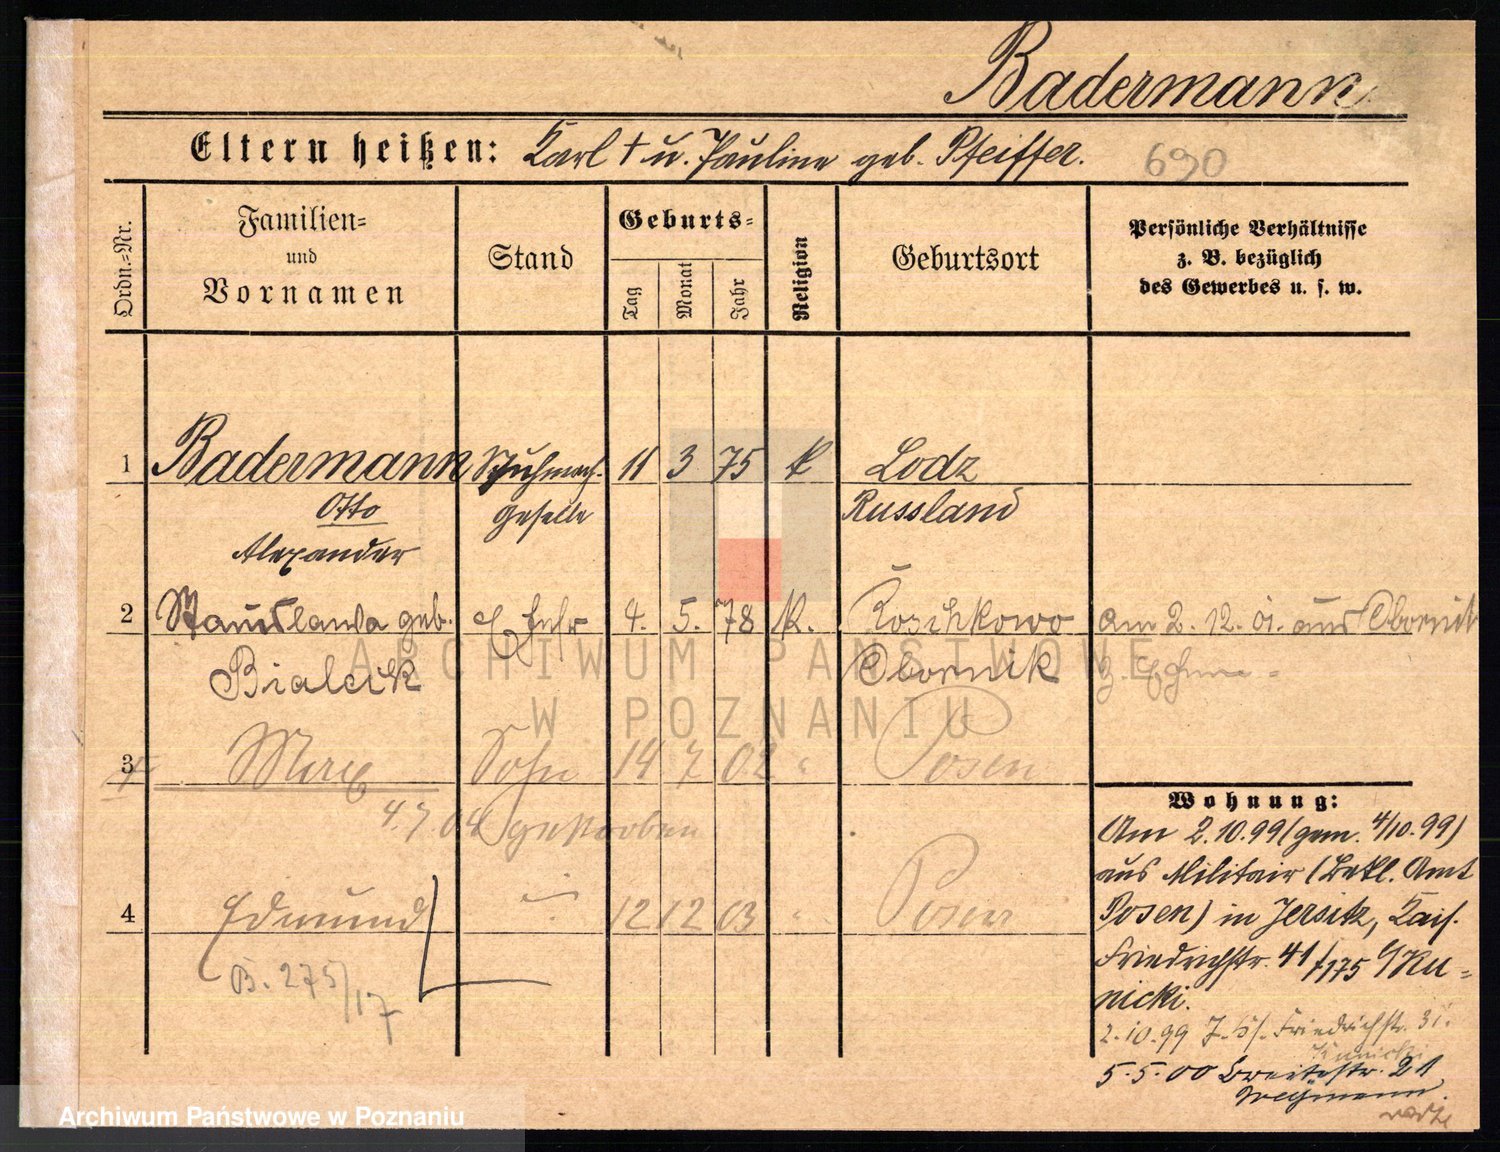 Badermann
Eltern heißen: Karl † u. Pauline geb. Pfeiffer. 690
Ordn.-Nr.
Familien-
und
Vornamen
Stand
Geburts-
Tag
Monat
Jahr
Religion
Geburtsort
Persönliche Verhältnisse
z. B. bezüglich
des Gewerbes u. s. w.
1 Badermann Schuhmach. 11 3 75 k Lodz
Otto Geselle Russland
Alexander
2 Stanislawa geb. Efrau 4. 5. 78 K. Roschkowo am 2. 12. 01. aus Obornik
Bialecik Obornik z. Ehm.
3 Max Sohn 14 7 02 " Posen
4.7.04 gestorben
4 Edmund " 12 12 03 " Posen
B. 275/17
Wohnung:
Am 2.10.99 (gem. 4/10.99)
aus Militair (Bekl. Amt
Posen) in Jersitz, Kais.
Friedrichstr. 41/175 b/Ku-
nicki.
2.10.99 J. Kf. Friedrichstr. 31.
Kunicki
5.5.00 Breitestr. 21
Wegmann.
ARCHIWUM PAŃSTWOWE
W POZNANIU
Archiwum Państwowe w Poznaniu